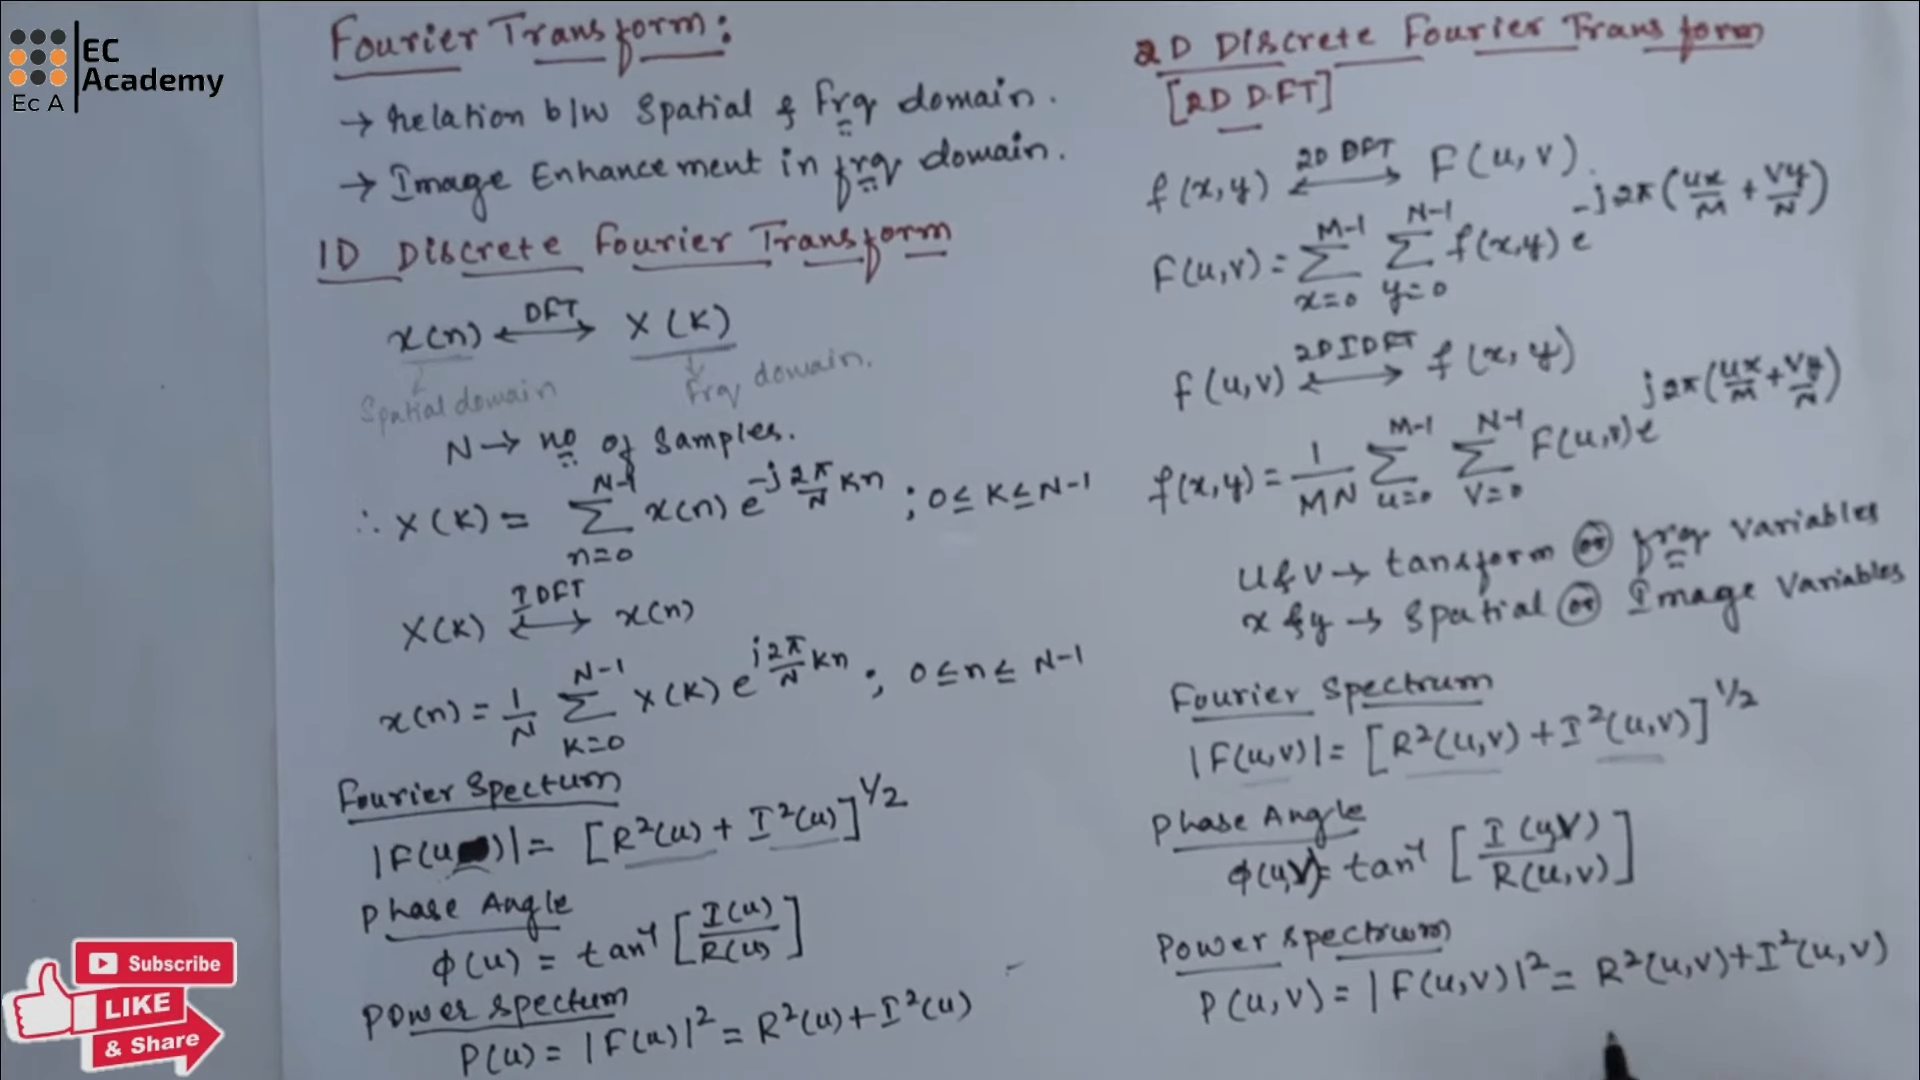 EC
Academy
Ec A
Fourier Transform:
→ Relation b/w Spatial & Frq domain.
→ Image Enhancement in frq domain.
1D Discrete Fourier Transform
x(n) ⟷ X(K)
DFT
Spatial domain
Frq domain.
N → no of Samples.
∴ X(K) = Σ_{n=0}^{N-1} x(n) e^{-j 2π/N Kn} ; 0 ≤ K ≤ N-1
X(K) ⟷ x(n)
IDFT
x(n) = 1/N Σ_{K=0}^{N-1} X(K) e^{j 2π/N Kn} ; 0 ≤ n ≤ N-1
Fourier Spectum
|F(u)| = [R²(u) + I²(u)]^{1/2}
Phase Angle
φ(u) = tan⁻¹ [I(u)/R(u)]
Power spectum
P(u) = |F(u)|² = R²(u) + I²(u)
2D Discrete Fourier Transform
[2D D.FT]
f(x,y) ⟷ F(u,v).
2D DFT
F(u,v) = Σ_{x=0}^{M-1} Σ_{y=0}^{N-1} f(x,y) e^{-j2π(ux/M + vy/N)}
F(u,v) ⟷ f(x,y)
2D IDFT
f(x,y) = 1/MN Σ_{u=0}^{M-1} Σ_{v=0}^{N-1} F(u,v) e^{j2π(ux/M + vy/N)}
u & v → tansform or frq variables
x & y → Spatial or Image Variables
Fourier Spectrum
|F(u,v)| = [R²(u,v) + I²(u,v)]^{1/2}
Phase Angle
φ(u,v) = tan⁻¹ [I(u,v)/R(u,v)]
Power spectrum
P(u,v) = |F(u,v)|² = R²(u,v) + I²(u,v)
Subscribe
LIKE
& Share